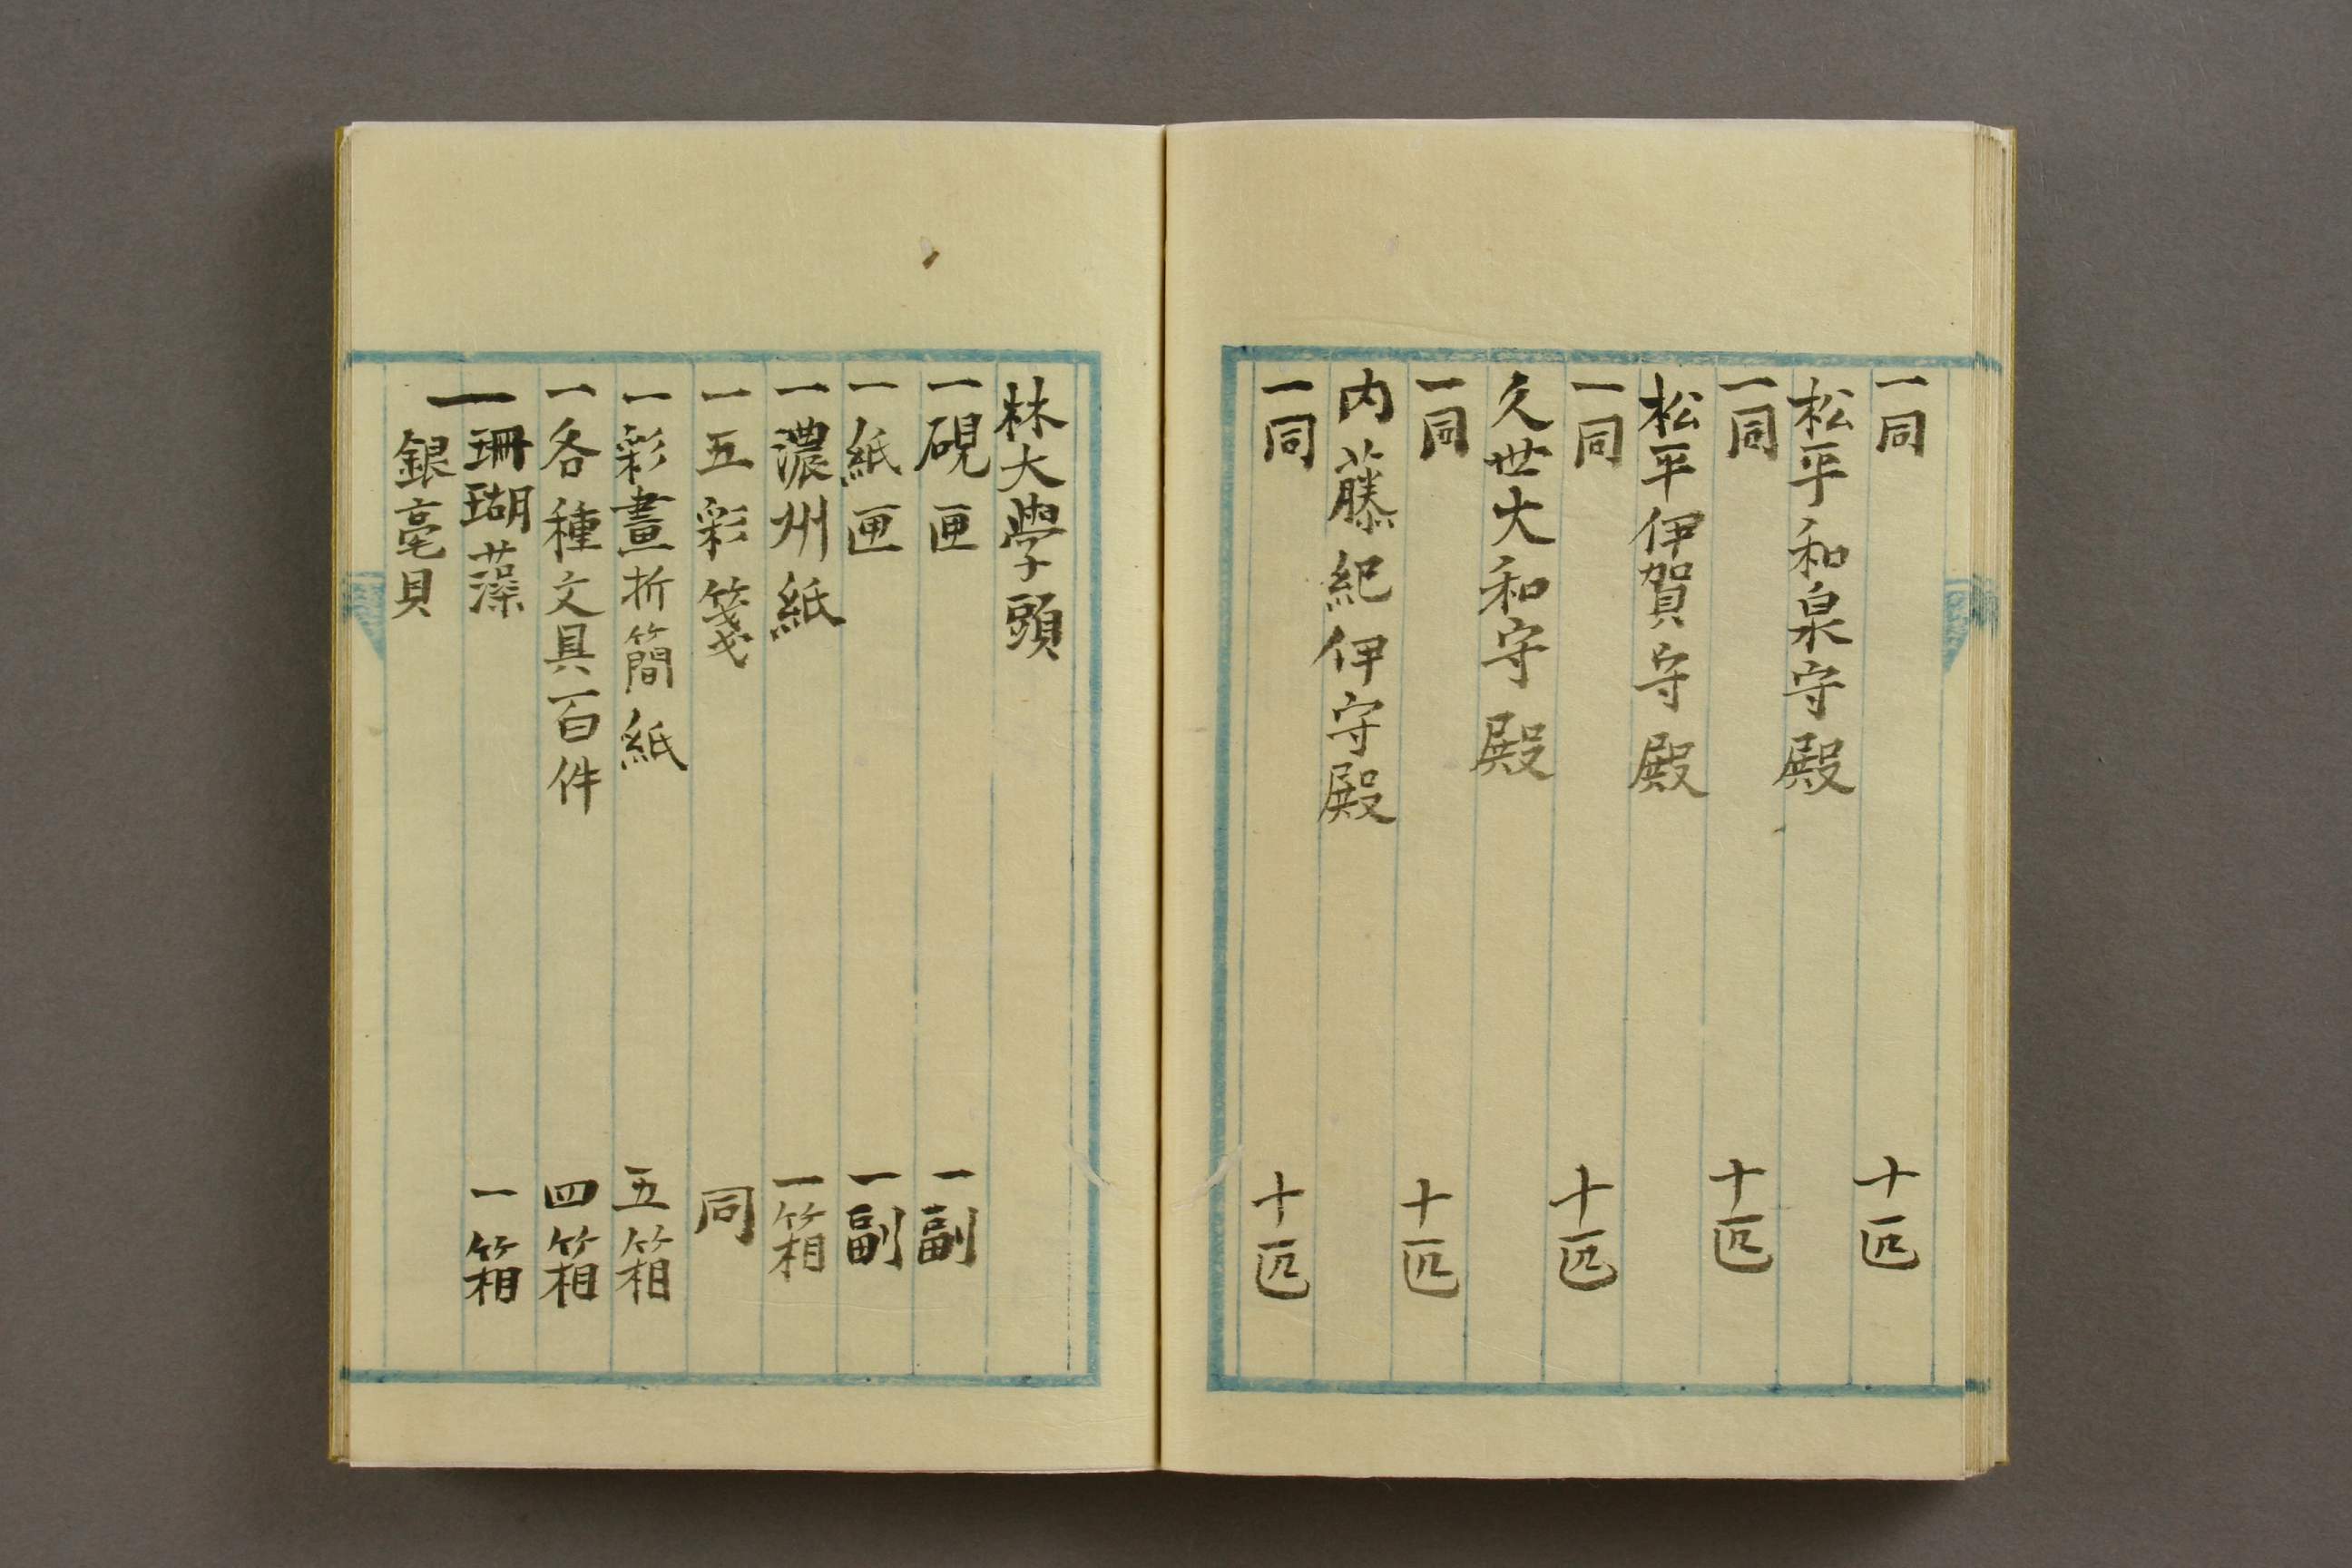 一同 十匹
松平和泉守殿
一同 十匹
松平伊賀守殿
一同 十匹
久世大和守殿
一同 十匹
内藤紀伊守殿
一同 十匹
林大學頭
一硯匣 一副
一紙匣 一副
一濃州紙 一箱
一五彩箋 同
一彩畫折簡紙 五箱
一各種文具一百件 四箱
一珊瑚藻 一箱
銀毫貝